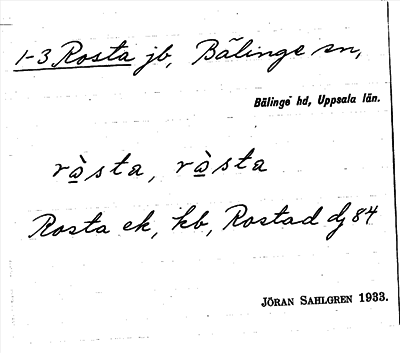 1-3 Rosta jb, Bälinge sn,
Bälinge hd, Uppsala län.
rⱥ̀sta, rⱥ̀sta
Rosta ek, kb, Rostad dj 84
JÖRAN SAHLGREN 1933.